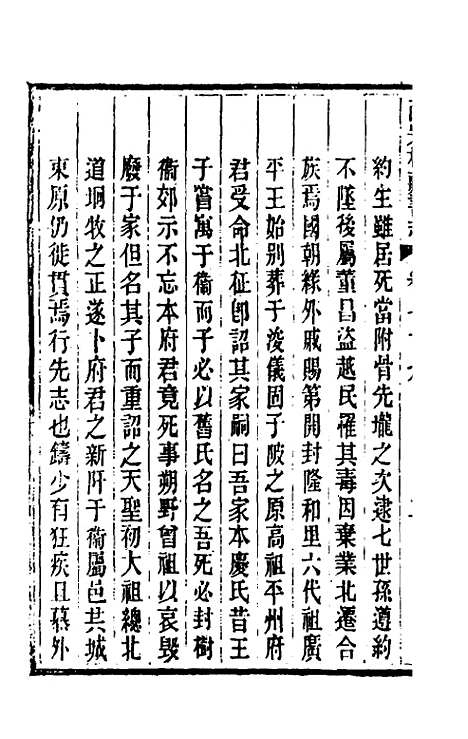 約生雖居死當附骨先壠之次逮七世孫遵約
不墜後屬董昌盜越民罹其毒因棄業北遷合
族焉國朝緣外戚賜第開封隆和里六代祖廣
平王始别葬于浚儀固子陂之原高祖平州府
君受命北征卽詔其家嗣曰吾家本慶氏昔王
子嘗寓于衞而子必以舊氏名之吾死必封樹
衞郊示不忘本府君竟死事朔野曾祖以哀毁
廢于家但名其子而重詔之天聖初大祖總北
道坰牧之正遂卜府君之新阡于衞屬邑共城
東原仍徙貫焉行先志也鑄少有狂疾且慕外